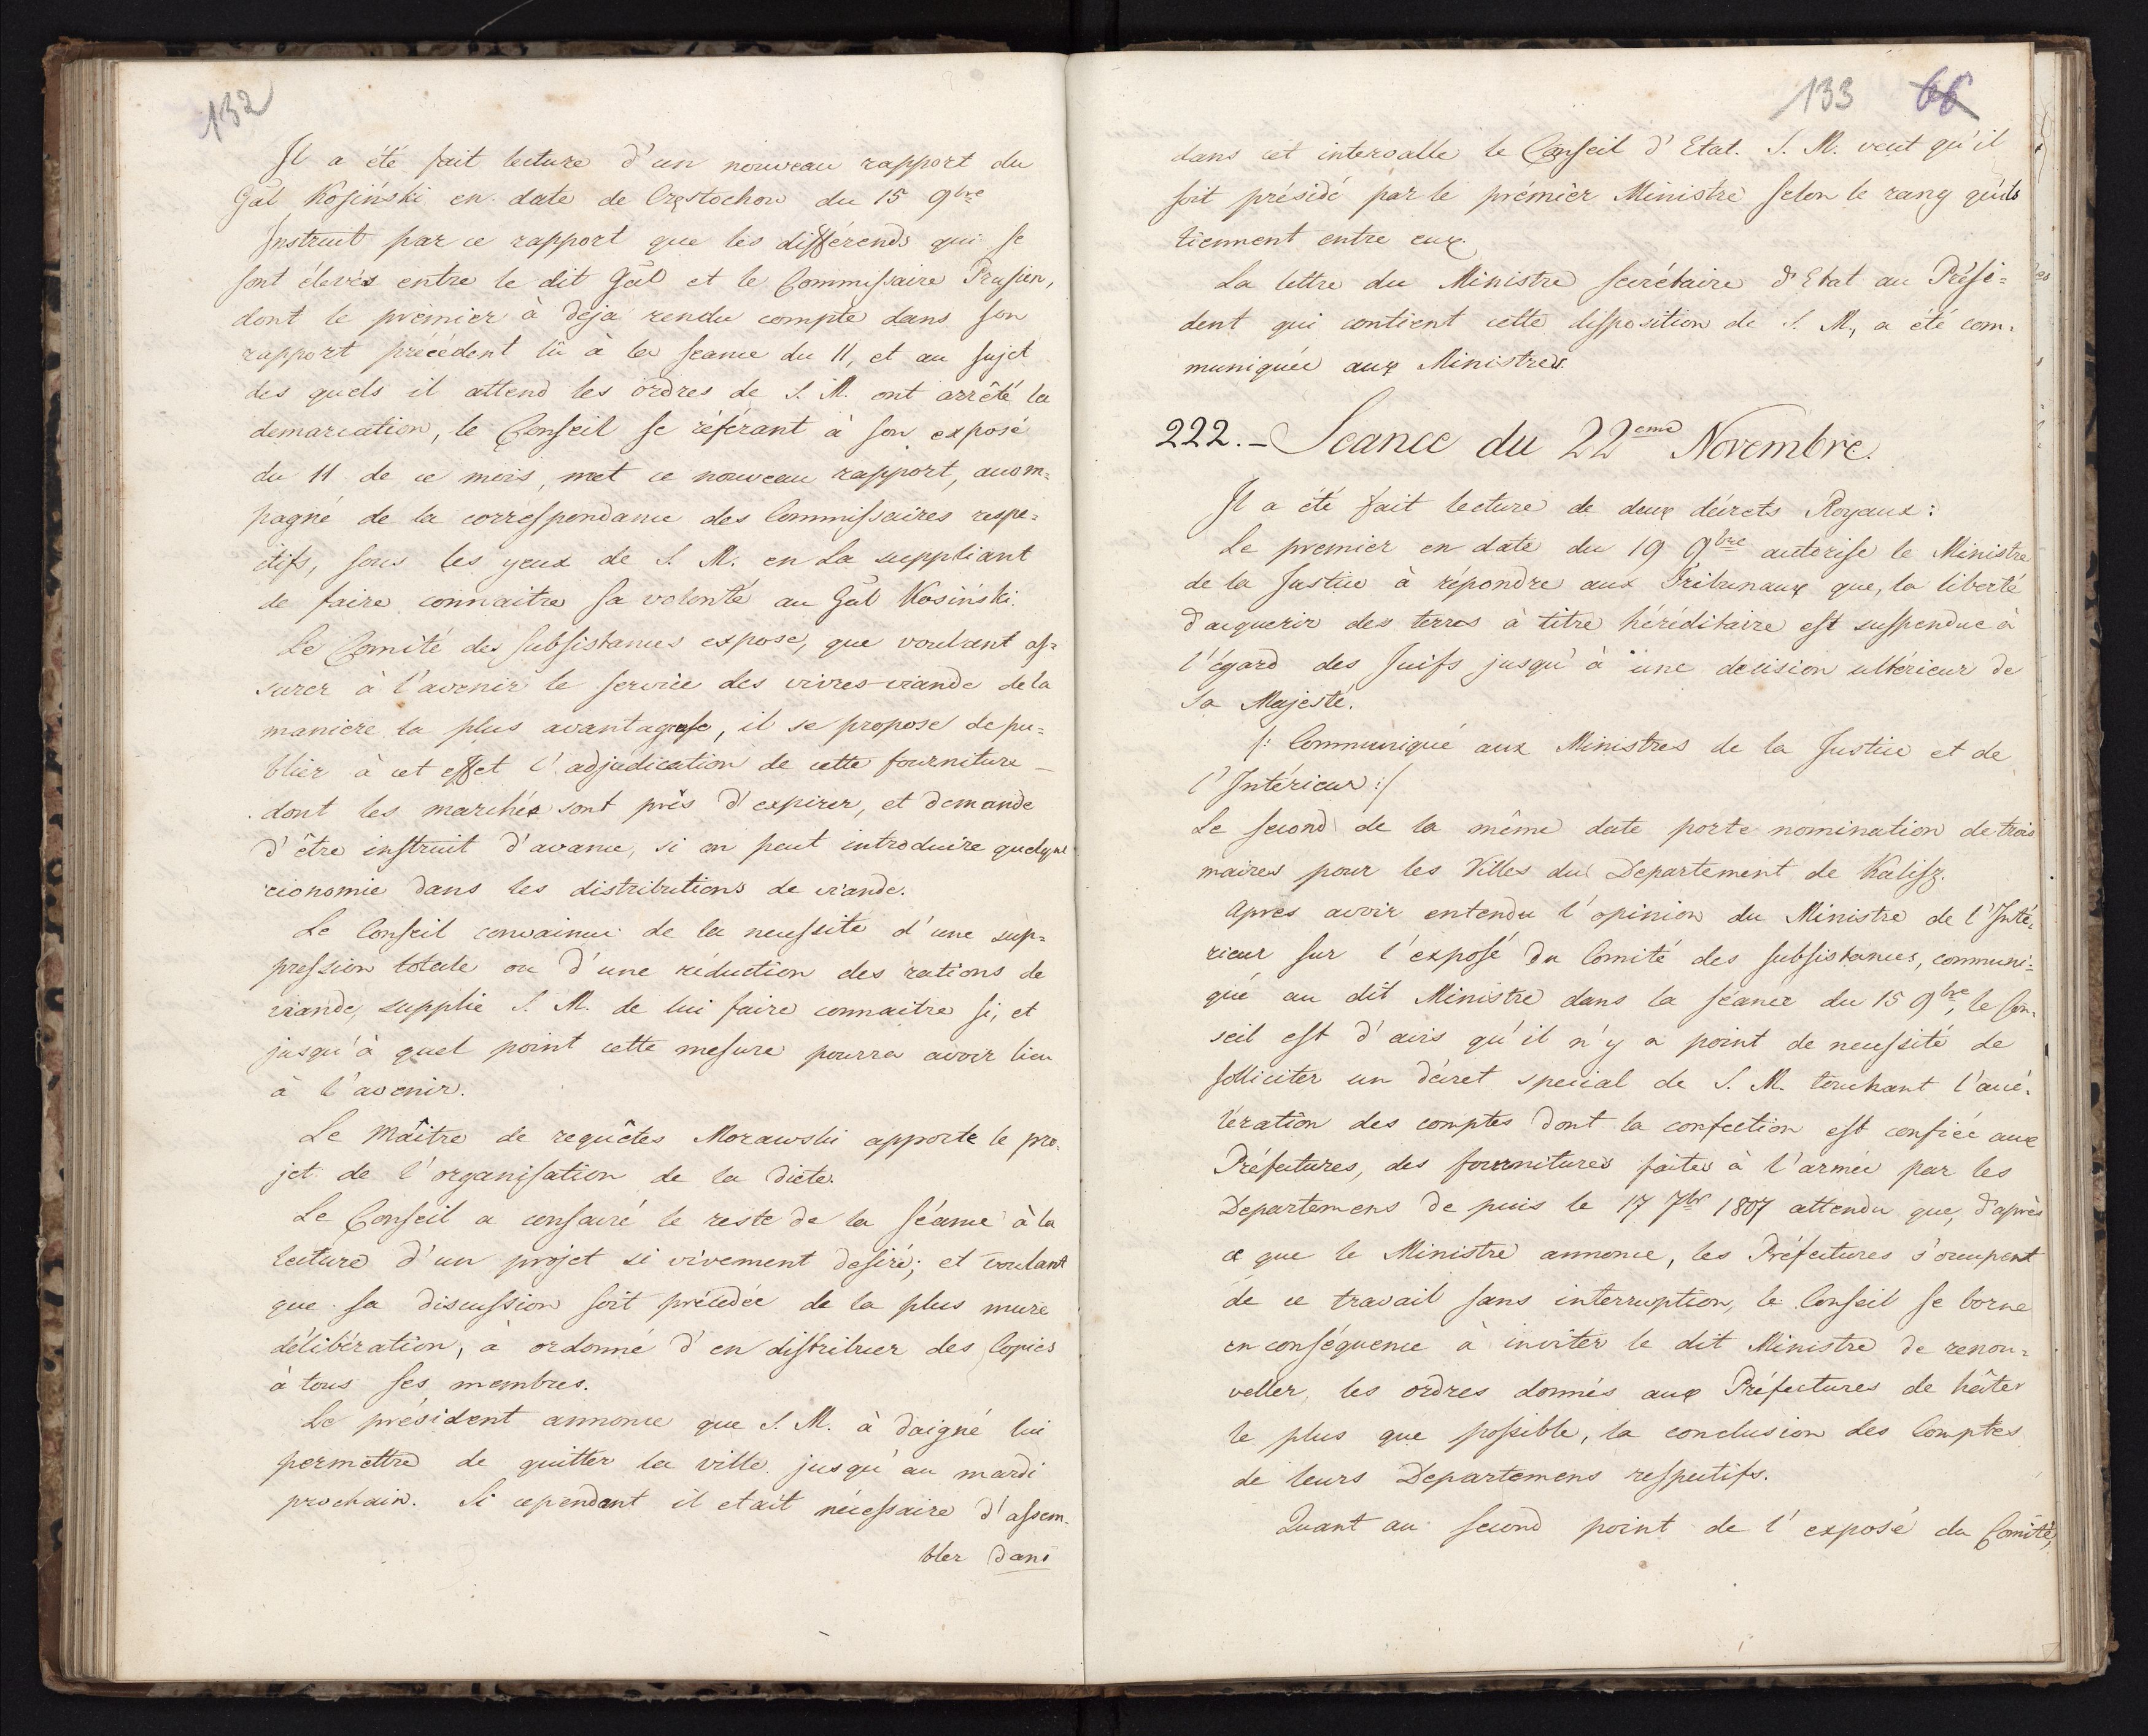 132
Il a été fait lecture d'un nouveau rapport du
Gāl Kosiński en date de Częstochow du 15 9bre
Instruit par ce rapport que les différends qui se
sont élevés entre le dit Gāl et le Commissaire Prusien,
dont le premier à déja rendu compte dans son
rapport precédent lû à la seance du 11, et au sujet
des quels il attend les ordres de S. M. ont arrêté la
demarcation, le Conseil se référant à son exposé
du 11 de ce mois, met ce nouveau rapport, accom=
pagné de la correspondance des Commissaires respe=
ctifs, sous les yeux de S. M. en La suppliant
de faire connaitre sa volonté au Gāl Kosiński.
Le Comité des subsistances expose, que voulant as=
surer à l'avenir le service des vivres-viande de la
maniere la plus avantageuse, il se propose de pu=
blier à cet effet l'adjudication de cette fourniture
dont les marchés sont près d'expirer, et demande
d'être instruit d'avance, si on peut introduire quelque
économie dans les distributions de viande.
Le Conseil convaincu de la necessité d'une sup=
pression totale ou d'une réduction des rations de
viande, supplie S. M. de lui faire connaitre si, et
jusqu'à quel point cette mesure pourra avoir lieu
à l'avenir.
Le Maître de requêtes Morawski apporte le pro=
jet de l'organisation de la Diete.
Le Conseil a consacré le reste de la séance à la
lecture d'un projet si vivement desiré; et voulant
que sa discussion soit précédée de la plus mure
délibération, à ordonné d'en distribuer des Copies
à tous ses membres.
Le président annonce que S. M. à daigné lui
permettre de quitter la ville jusqu'au mardi
prochain. Si cependant il etait nécessaire d'assem=
bler dans
133 66
dans cet intervalle le Conseil d'Etat. S. M. veut qu'il
soit présidé par le prémier Ministre selon le rang qu'ils
tiennent entre eux.
La lettre du Ministre secrétaire d'Etat au Présī=
dent qui contient cette disposition de S. M., a été com=
muniquée aux Ministres.
222. - Seance du 22eme Novembre.
Il a été fait lecture de deux décrets Royaux:
Le premier en date du 19 9bre autorise le Ministre
de la Justice à répondre aux Tribunaux que, la liberté
d'acquerir des terres à titre héréditaire est suspendue à
l'égard des Juifs jusqu'à une decision ultérieur de
Sa Majesté.
/: Communiqué aux Ministres de la Justice et de
l'Intérieur :/
Le second de la même date porte nomination de trois
maires pour les Villes du Departement de Kalisz.
Apres avoir entendu l'opinion du Ministre de l'Inté=
rieur sur l'exposé du Comité des subsistances, communi=
qué au dit Ministre dans la séance du 15 9bre, le Con=
seil est d'avis qu'il n'y a point de necessité de
solliciter un décret special de S. M. touchant l'accé=
lération des comptes dont la confection est confiée aux
Préfectures, des fournitures faites à l'armée par les
Departemens de puis le 17 7br 1807 attendu que, d'après
ce que le Ministre annonce, les Préfectures s'occupent
de ce travail sans interruption, le Conseil se borne
en conséquence à inviter le dit Ministre de renou=
veller, les ordres donnés aux Préfectures de hâter
le plus que possible, la conclusion des Comptes
de leurs Departemens respectifs.
Quant au second point de l'exposé du Comité,